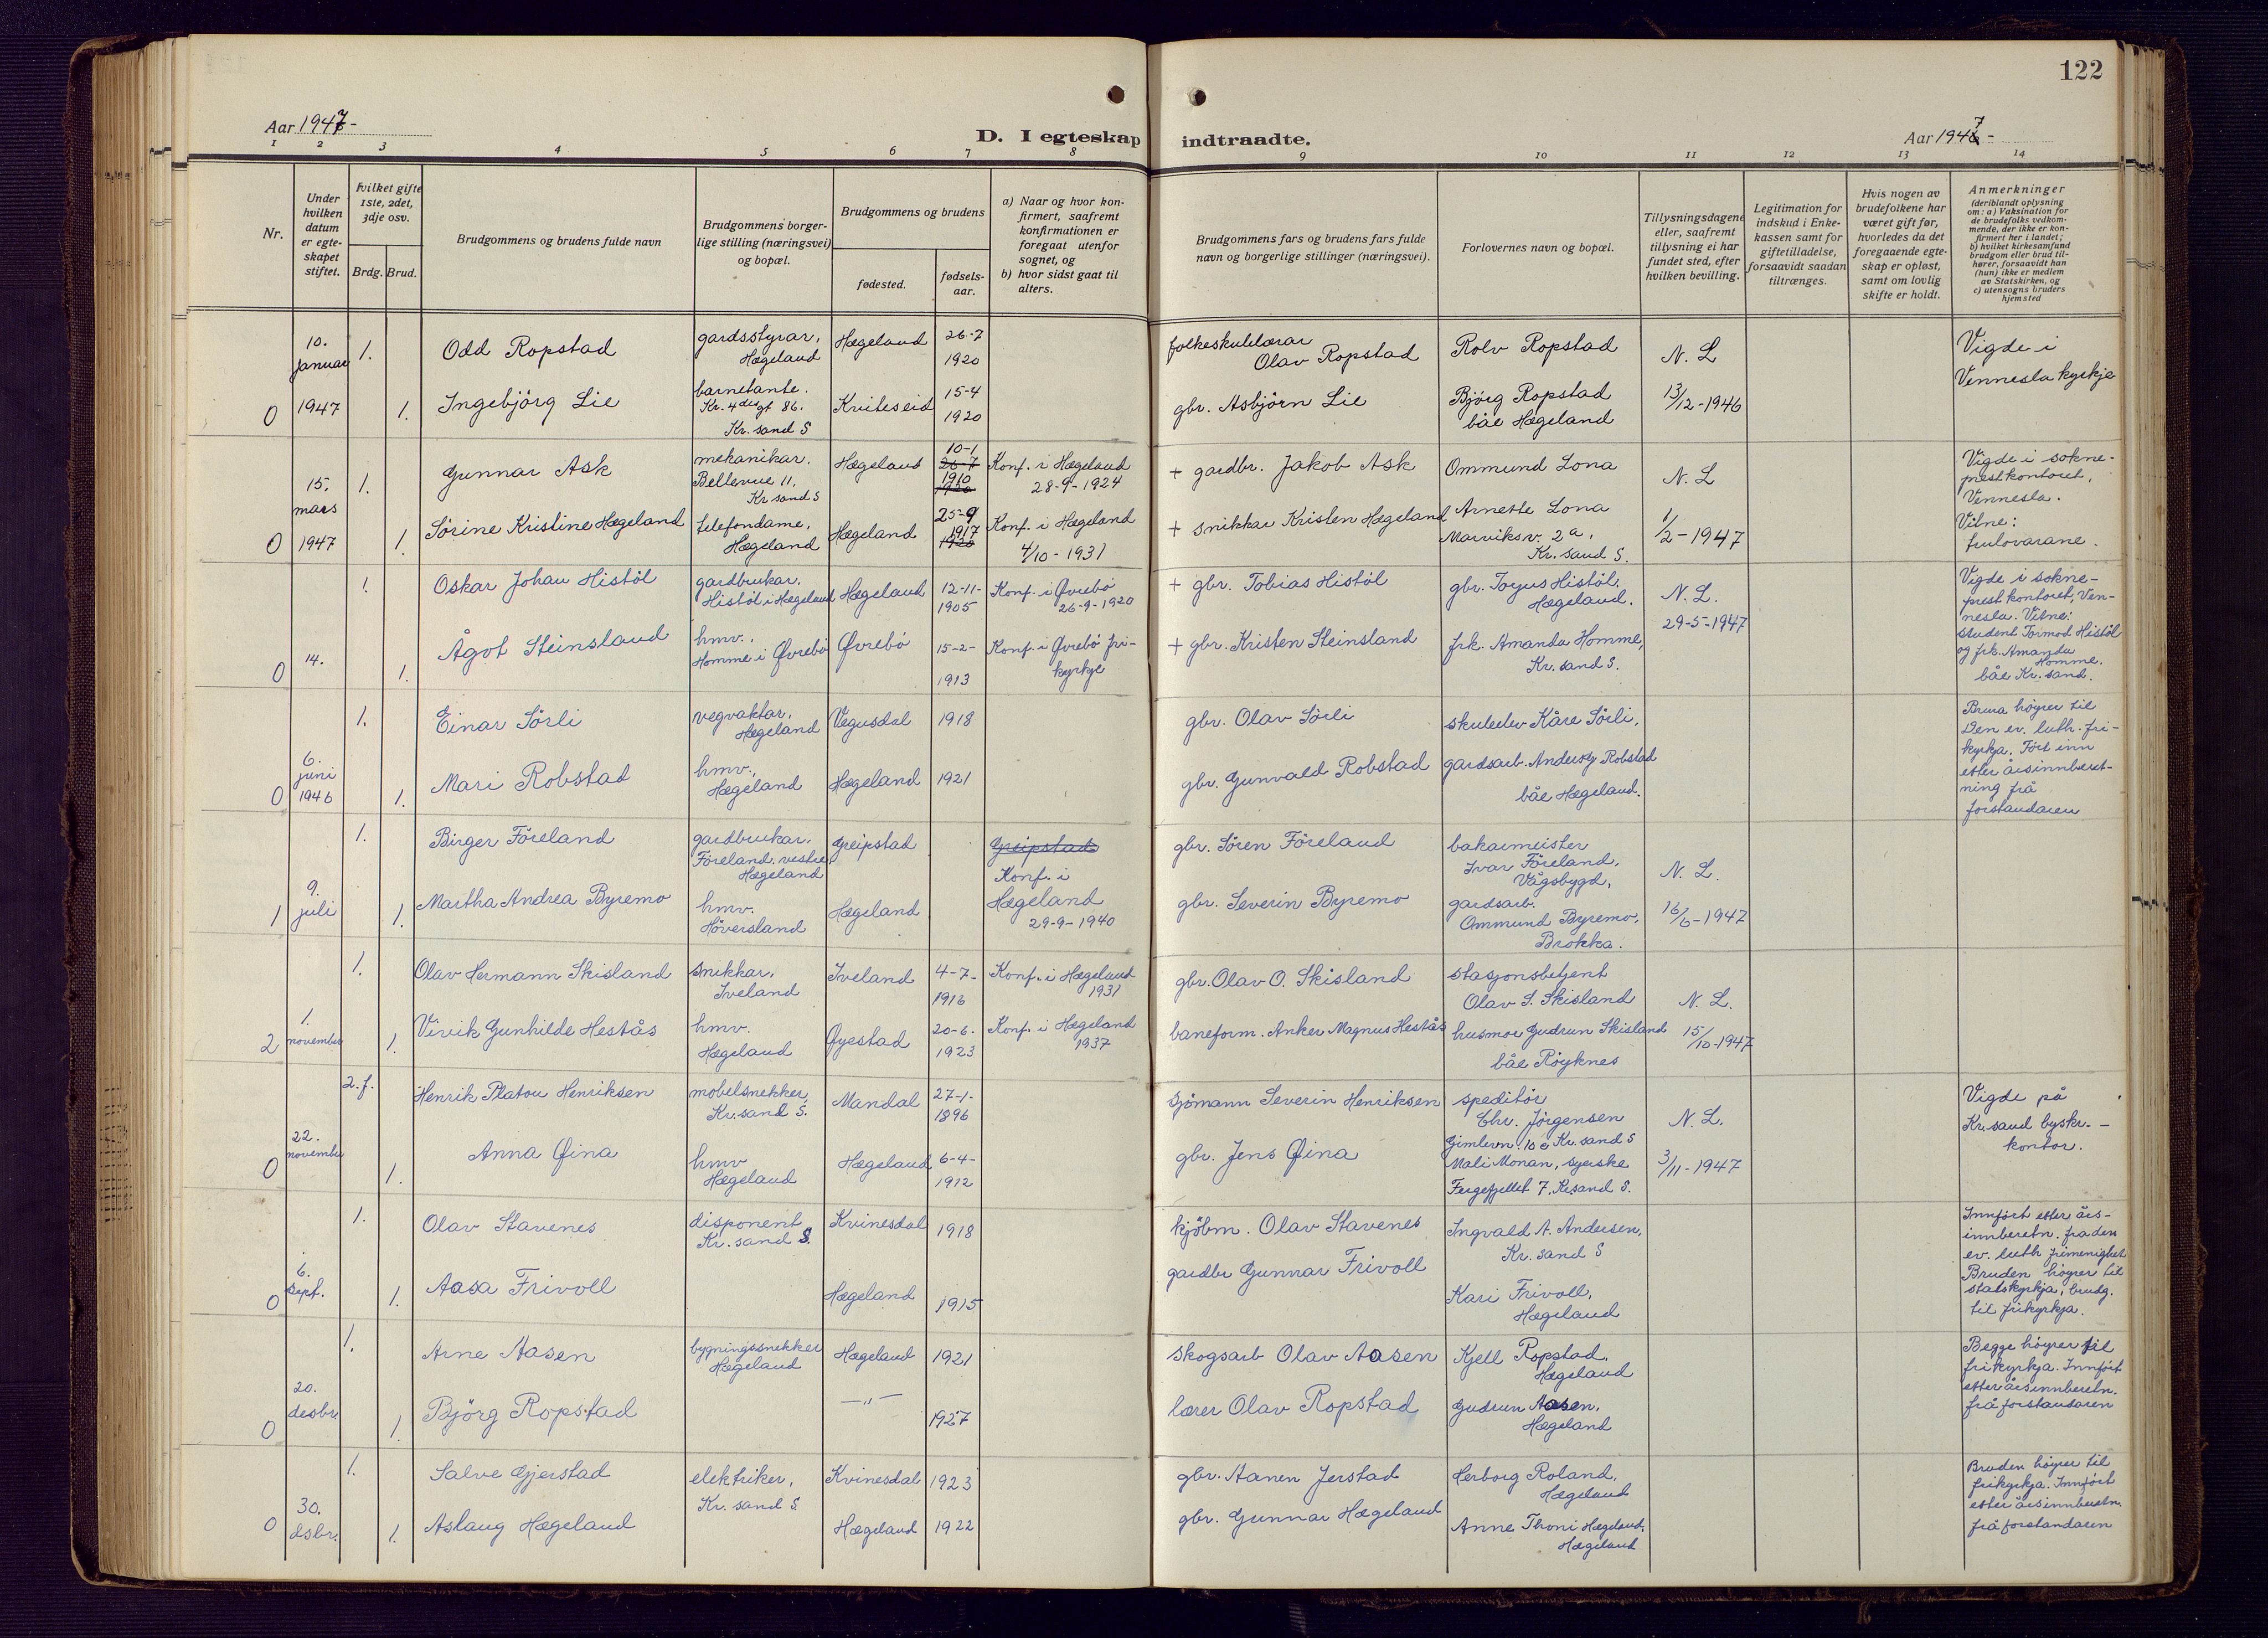 122
Aar 1947-
D. I egteskap indtraadte.
Aar 1947-
1 2 3 4 5 6 7 8 9 10 11 12 13 14
Nr.
Under
hvilken
datum
er egte-
skapet
stiftet.
Hvilket gifte
1ste, 2det,
3dje osv.
Brdg. Brud.
Brudgommens og brudens fulde navn
Brudgommens borger-
lige stilling (næringsvei)
og bopæl.
Brudgommens og brudens
fødested.
fødsels-
aar.
a) Naar og hvor kon-
firmert, saafremt
konfirmationen er
foregaat utenfor
sognet, og
b) hvor sidst gaat til
alters.
Brudgommens fars og brudens fars fulde
navn og borgerlige stillinger (næringsvei).
Forlovernes navn og bopæl.
Tillysningsdagene
eller, saafremt
tillysning ei har
fundet sted, efter
hvilken bevilling.
Legitimation for
indskud i Enke-
kassen samt for
giftetilladelse,
forsaavidt saadan
tiltrænges.
Hvis nogen av
brudefolkene har
været gift før,
hvorledes da det
foregaaende egte-
skap er opløst,
samt om lovlig
skifte er holdt.
Anmerkninger
(deriblandt oplysning
om: a) Vaksination for
de brudefolks vedkom-
mende, der ikke er kon-
firmert her i landet;
b) hvilket kirkesamfund
brudgom eller brud til-
hører, forsaavidt han
(hun) ikke er medlem
av Statskirken, og
c) utensogns bruders
hjemsted
0
10.
januar
1947
1.
1.
Odd Ropstad
Ingebjörg Lie
gardsstyrar,
Hægeland
barnetante.
Kr. 4des gt 86.
Kr. sand S
Hægeland
Kviteseid
26-7
1920
15-4
1920
folkeskulelærar
Olav Ropstad
gbr. Asbjörn Lie
Rolv Ropstad
Björg Ropstad
båe Hægeland
N. L
13/12-1946
Vigde i
Vennesla kyrkje
0
15.
mars
1947
1.
1.
Gunnar Ask
Sörine Kristine Hægeland
mekanikar.
Bellevue 11,
Kr sand S
telefondame,
Hægeland
Hægeland
Hægeland
10-1
26-7
1910
1920
25-9
1917
1920
Konf. i Hægeland
28-9-1924
Konf. i Hægeland
4/10-1931
+ gardbr. Jakob Ask
+ snikkar Kristen Hægeland
Ommund Lona
Arnette Lona
Marviksv. 2a,
Kr. sand S.
N. L
1/2-1947
Vigde i sokne-
prestkontoret,
Vennesla.
Vitne:
trulovarane.
0
14.
1.
1.
Oskar Johan Histöl
Ågot Steinsland
gardbrukar.
Histöl i Hægeland
hmv.,
Homme i Øvrebö
Hægeland
Øvrebö
12-11-
1905
15-2-
1913
Konf. i Øvrebö
26-9-1920
Konf. i Øvrebö fri-
kyrkje
+ gbr. Tobias Histöl
+ gbr. Kristen Steinsland
gbr. Torjus Histöl,
Hægeland.
frk. Amanda Homme,
Kr. sand S.
N. L.
29-5-1947
Vigde i sokne-
prestkontoret, Ven-
nesla. Vitne:
student Tormod Histöl
og frk. Amanda
Homme.
båe Kr. sand.
0
6.
juni
1946
1.
1.
Einar Sörli
Mari Robstad
vegvaktar,
Hægeland
hmv.,
Hægeland
Vegusdal
Hægeland
1918
1921
gbr. Olav Sörli
gbr. Gunvald Robstad
skuleelev Kåre Sörli,
gardsarb. Anders Robstad
båe Hægeland.
Brura höyrer til
Den ev. luth. fri-
kyrkja. Fört inn
etter årsinnberet-
ning frå
forstandaren
1
9.
juli
1.
1.
Birger Föreland
Martha Andrea Byremo
gardbrukar.
Föreland, vestre,
Hægeland
hmv.
Höversland
Greipstad
Hægeland
Greipstad
Konf. i
Hægeland
29-9-1940
gbr. Sören Föreland
gbr. Severin Byremo
bakarmeister
Ivar Föreland,
Vågsbygd,
gardsarb.
Ommund Byremo,
Brokka.
N. L.
16/6-1947
2
1.
november
1.
1.
Olav Hermann Skisland
Virik Gunhilde Hestås
snikkar,
Iveland
hmv.
Hægeland
Iveland
Øyestad
4-7-
1916
20-6-
1923
Konf. i Hægeland
1931
Konf. i Hægeland
1937
gbr. Olav O. Skisland
baneform. Anker Magnus Hestås
stasjonsbetjent
Olav S. Skisland
husmor Gudrun Skisland
båe Röyknes
N. L.
15/10-1947
0
22.
november
2. f.
1.
Henrik Platou Henriksen
Anna Øina
möbelsnekker,
Kr.sand S.
hmv
Hægeland
Mandal
Hægeland
27-1-
1896
6-4-
1912
sjömann Severin Henriksen
gbr. Jens Øina
speditör
Chr. Jörgensen
Gimlevn. 10 c Kr. sand S
Mali Monan, syerske
Fergefjellet 7, Kr.sand S.
N. L.
3/11-1947
Vigde på
Kr.sand byskr.-
kontor.
0
6.
sept.
1.
1.
Olav Stavenes
Aasa Frivoll
disponent
Kr. sand S.
Kvinesdal
Hægeland
1918
1915
kjöbm. Olav Stavenes
gardbr Gunnar Frivoll
Ingvald A. Andersen,
Kr. sand S
Kari Frivoll,
Hægeland
Innfört etter års-
innberetn. fra den
ev. luth frimenighet
Bruden höyrer til
statskyrkja, brudg.
til frikyrkja.
0
20.
desbr.
1.
1.
Arne Aasen
Björg Ropstad
bygningssnekker
Hægeland
Hægeland
—"—
1921
1927
skogsarb Olav Aasen
lærer Olav Ropstad
Kjell Ropstad,
Hægeland
Gudrun Aasen,
Hægeland
Begge höyrer til
frikyrkja. Innfört
etter årsinnberetn.
frå forstandaren
0
30.
desbr.
1.
1.
Salve Gjerstad
Aslaug Hægeland
elektriker,
Kr. sand S.
Kvinesdal
Hægeland
1923
1922
gbr. Aanen Jerstad
gbr. Gunnar Hægeland
Herborg Roland,
Hægeland
Anne Thoni Hægeland,
Hægeland
Bruden höyrer til
frikyrkja. Innfört
etter årsinnberetn.
frå forstandaren